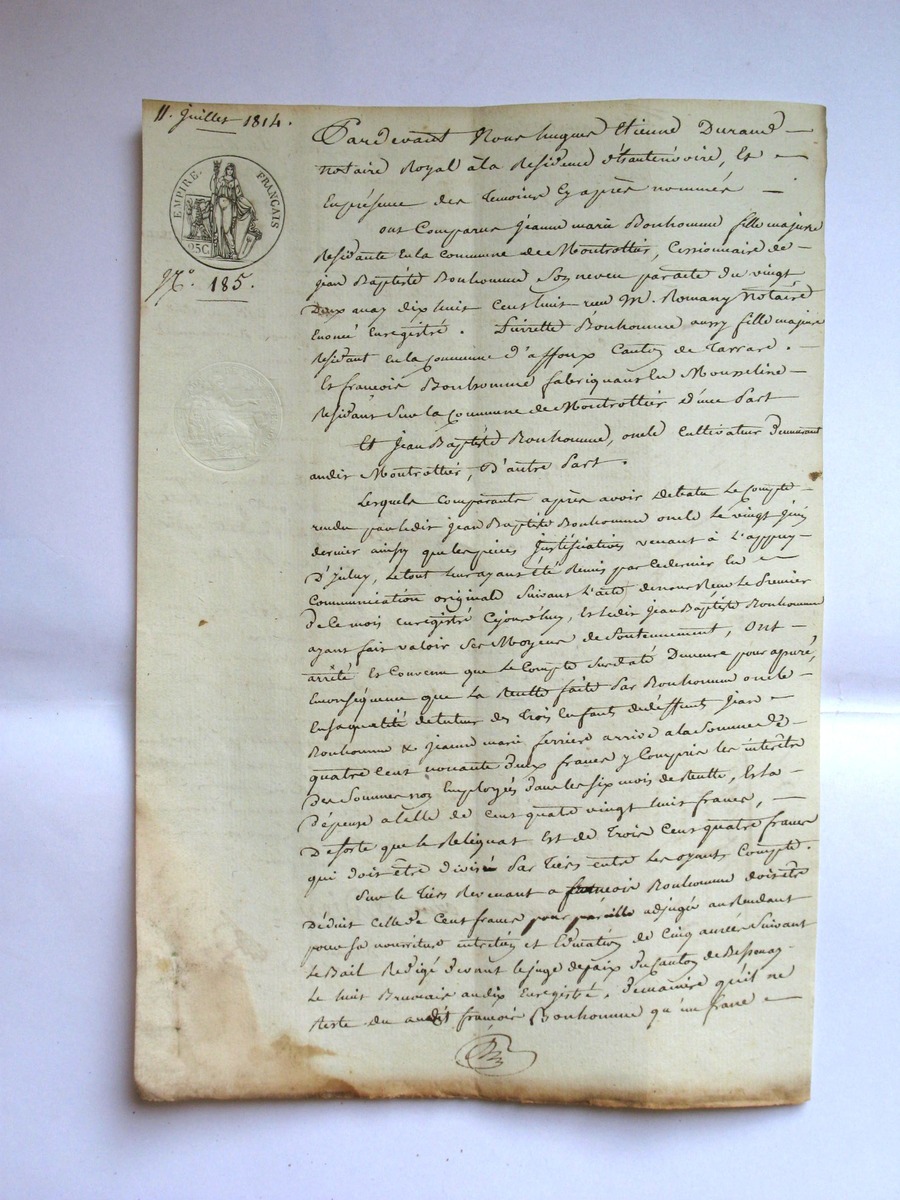 11. Juillet 1814.
EMPIRE FRANÇAIS
25C
N.º 185.
Pardevant Nous hugues Etienne Durand
notaire Royal à la Residence d'hauterivoire, Et
En présence des temoins Cy après nommés
ont Comparus Jeanne marie Bonhomme fille majeure
Residante En la Commune de Montrottier, Cessionnaire de
jean Baptiste Bonhomme Son neveu par acte du vingt
Deux may dix huit Cent huit reçu M. Romany Notaire
Enoncé Enregistré. Pierrette Bonhomme aussy fille majeure
Residant En la Commune d'affoux Canton de Tarrare.
Et françois Bonhomme fabriquant En Mousseline
Residant Sur la Commune de Montrottier d'une Part
Et Jean Baptiste Bonhomme, oncle Cultivateur Demeurant
audit Montrottier, D'autre Part.
Lesquels Comparants après avoir debatu Le Compte
rendu par ledit jean Baptiste Bonhomme oncle Le vingt Juin
dernier ainsy que les pièces Justificatives venant à L'appuy
D'iceluy, Le tout Leur ayant été Remis par Ce dernier En
Communication original Suivant L'acte de nous Reçu Le Premier
De Ce mois enregistré Cejourd'huy, Et Ledit Jean Baptiste Bonhomme
ayant fait valoir Ses Moyens de Soutennement, Ont
arrêté Et Convenu que Le Compte Susdaté Demeure pour apuré,
En conséquence que La Recette faite Par Bonhomme oncle
En Sa qualité de tuteur des trois Enfants de deffunts Jean
Bonhomme & Jeanne marie ferriere arrive a la Somme De
quatre Cent nonante deux francs y Compris les intérêts
Des Sommes non Employés dans les Six mois de Recette, Et la
Dépense a Celle de Cent quatre vingt huit francs,
De Sorte que le Reliquat Est de Trois Cent quatre francs
qui doit être divisé Par tiers entre Les oyants Compte.
Sur Le tiers Revenant a françois Bonhomme doit être
Déduit Celle De Cent francs pour pareille adjugée au Rendant
pour Sa nourriture entretien et Education de Cinq années Suivant
Le Bail Redigé devant Le juge de paix Du Canton de Bessenay
Le huit Brumaire an dix Enregistré, De maniere qu'il ne
Reste Du audit françois Bonhomme qu'un franc